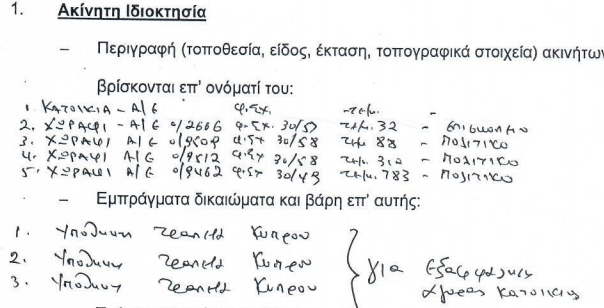 1. Ακίνητη Ιδιοκτησία
– Περιγραφή (τοποθεσία, είδος, έκταση, τοπογραφικά στοιχεία) ακινήτων
βρίσκονται επ' ονόματί του:
1. ΚΑΤΟΙΚΙΑ - Α/Γ Φ.Σχ. -τεμ. -
2. ΧΩΡΑΦΙ - Α/Γ 0/2606 Φ.Σχ. 30/57 τεμ. 32 -
3. ΧΩΡΑΦΙ Α/Γ 0/9509 Φ.Σχ 30/58 τεμ 88 - ΠΟΛΙΤΙΚΟ
4. ΧΩΡΑΦΙ Α/Γ 0/9512 Φ.Σχ 30/58 τεμ. 312 - ΠΟΛΙΤΙΚΟ
5. ΧΩΡΑΦΙ Α/Γ 0/9462 Φ.Σχ 30/49 τεμ. 783 - ΠΟΛΙΤΙΚΟ
– Εμπράγματα δικαιώματα και βάρη επ' αυτής:
1. Υποθήκη Τράπεζα Κύπρου
2. Υποθήκη Τράπεζα Κύπρου
3. Υποθήκη Τράπεζα Κύπρου
για εξασφάλιση
αγοράς κατοικίας